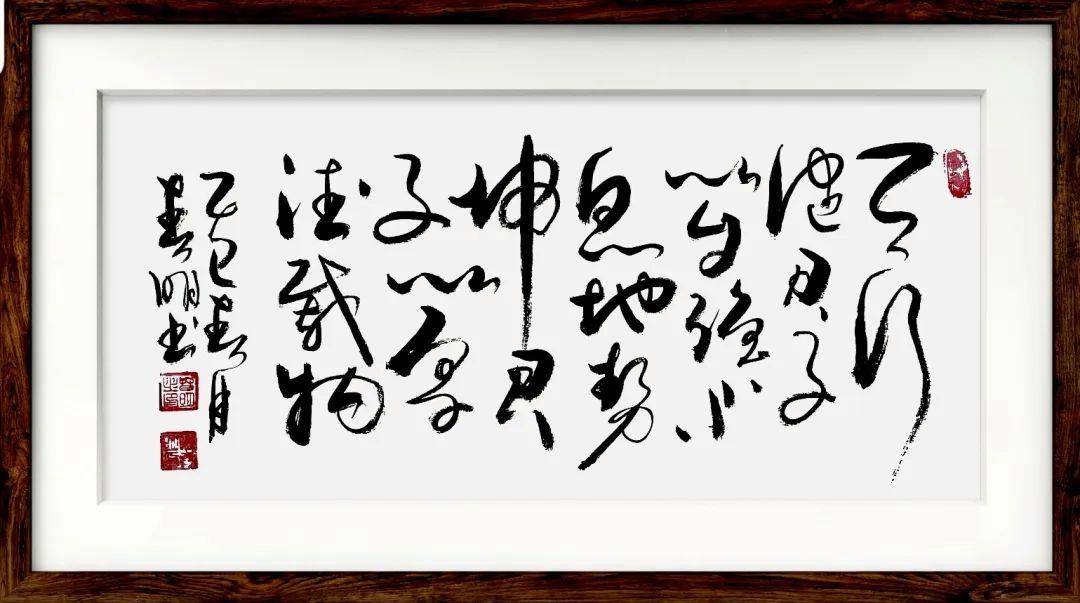 天行
健君子
以自强不
息地势
坤君
子以厚
德载物
乙巳春月
春明书